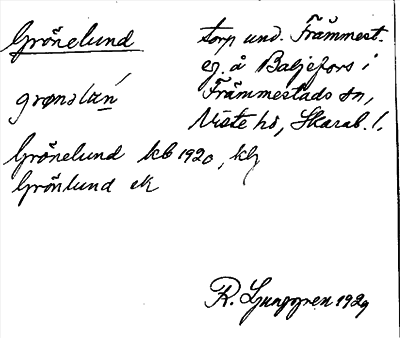 Grönelund
torp und. Främmest.
eg. å Baljefors i
Främmestads sn,
Viste hd, Skarab. l.
grønslan̄́
Grönelund kb 1920, klj
Grönlund ek
R. Ljunggren 1929